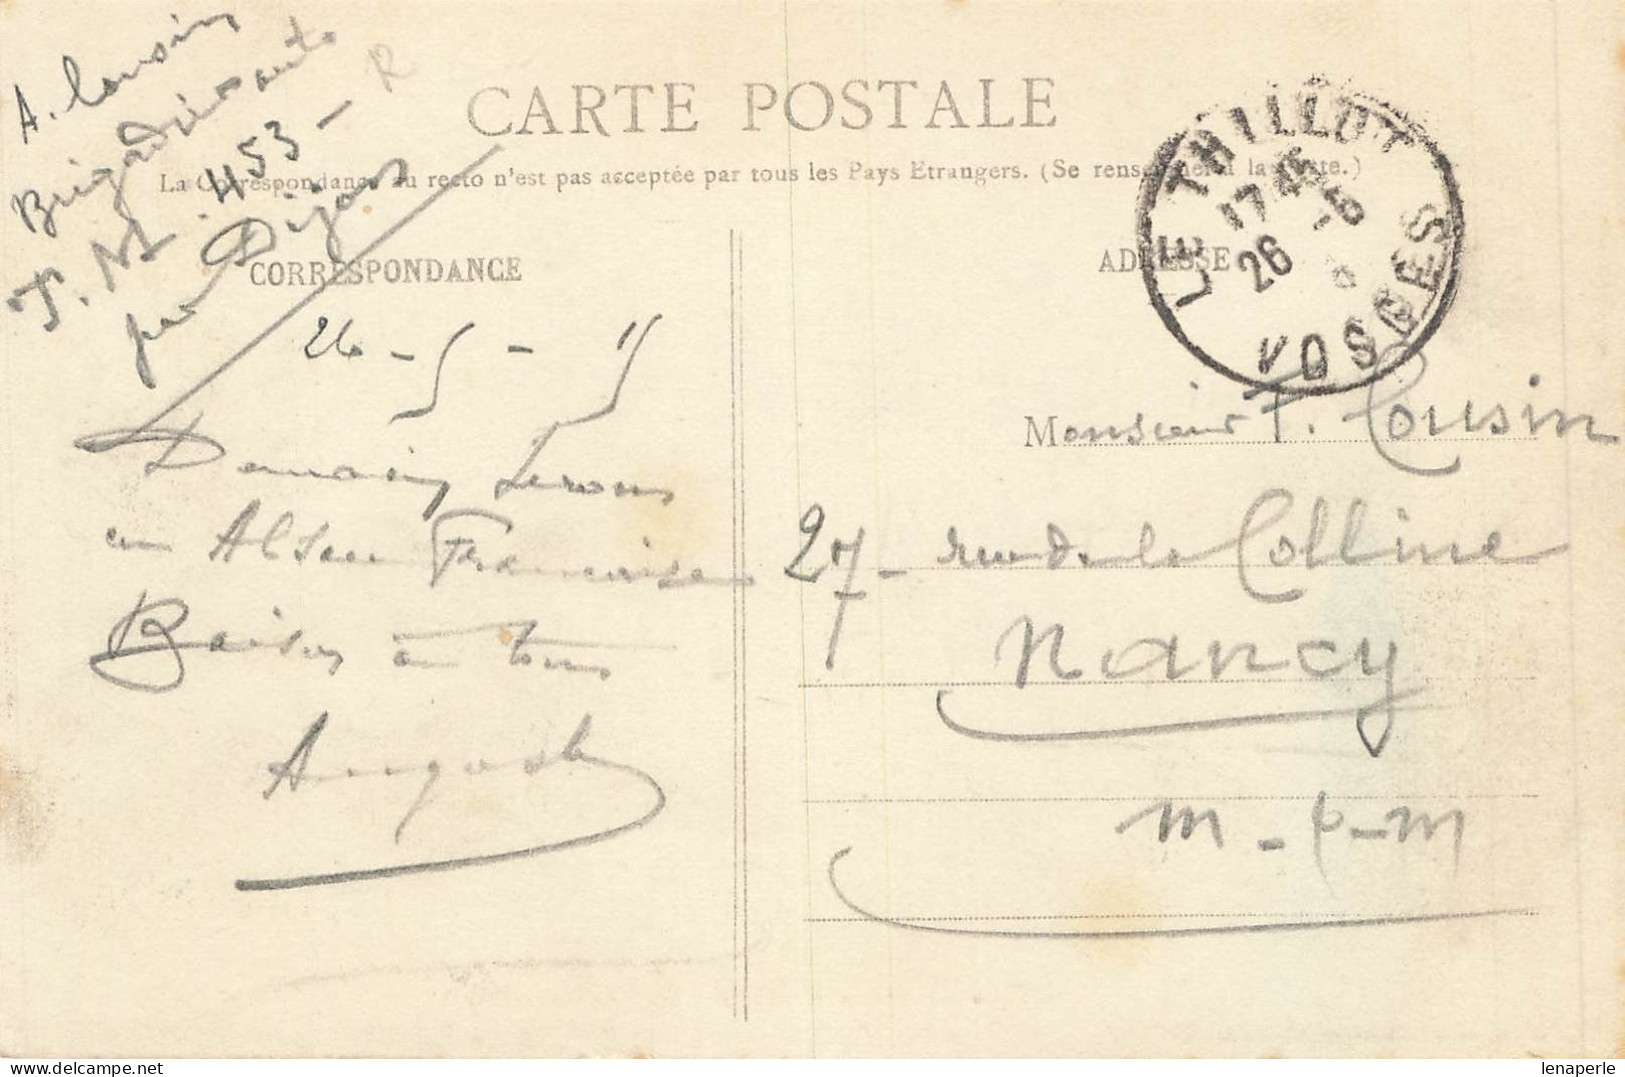 A. Cousin
Brigadier auto
T. M. 453 - R
par Dijon
CARTE POSTALE
La Correspondance au recto n'est pas acceptée par tous les Pays Etrangers. (Se renseigner à la Poste.)
CORRESPONDANCE
ADRESSE
LE THILLOT
17 45
26 -5
VOSGES
26 - 5 - 15
Demain serons
en Alsace Française
Baisers à tous
August
Monsieur F. Cousin
27 - rue de la Colline
Nancy
M - M
lenaperle